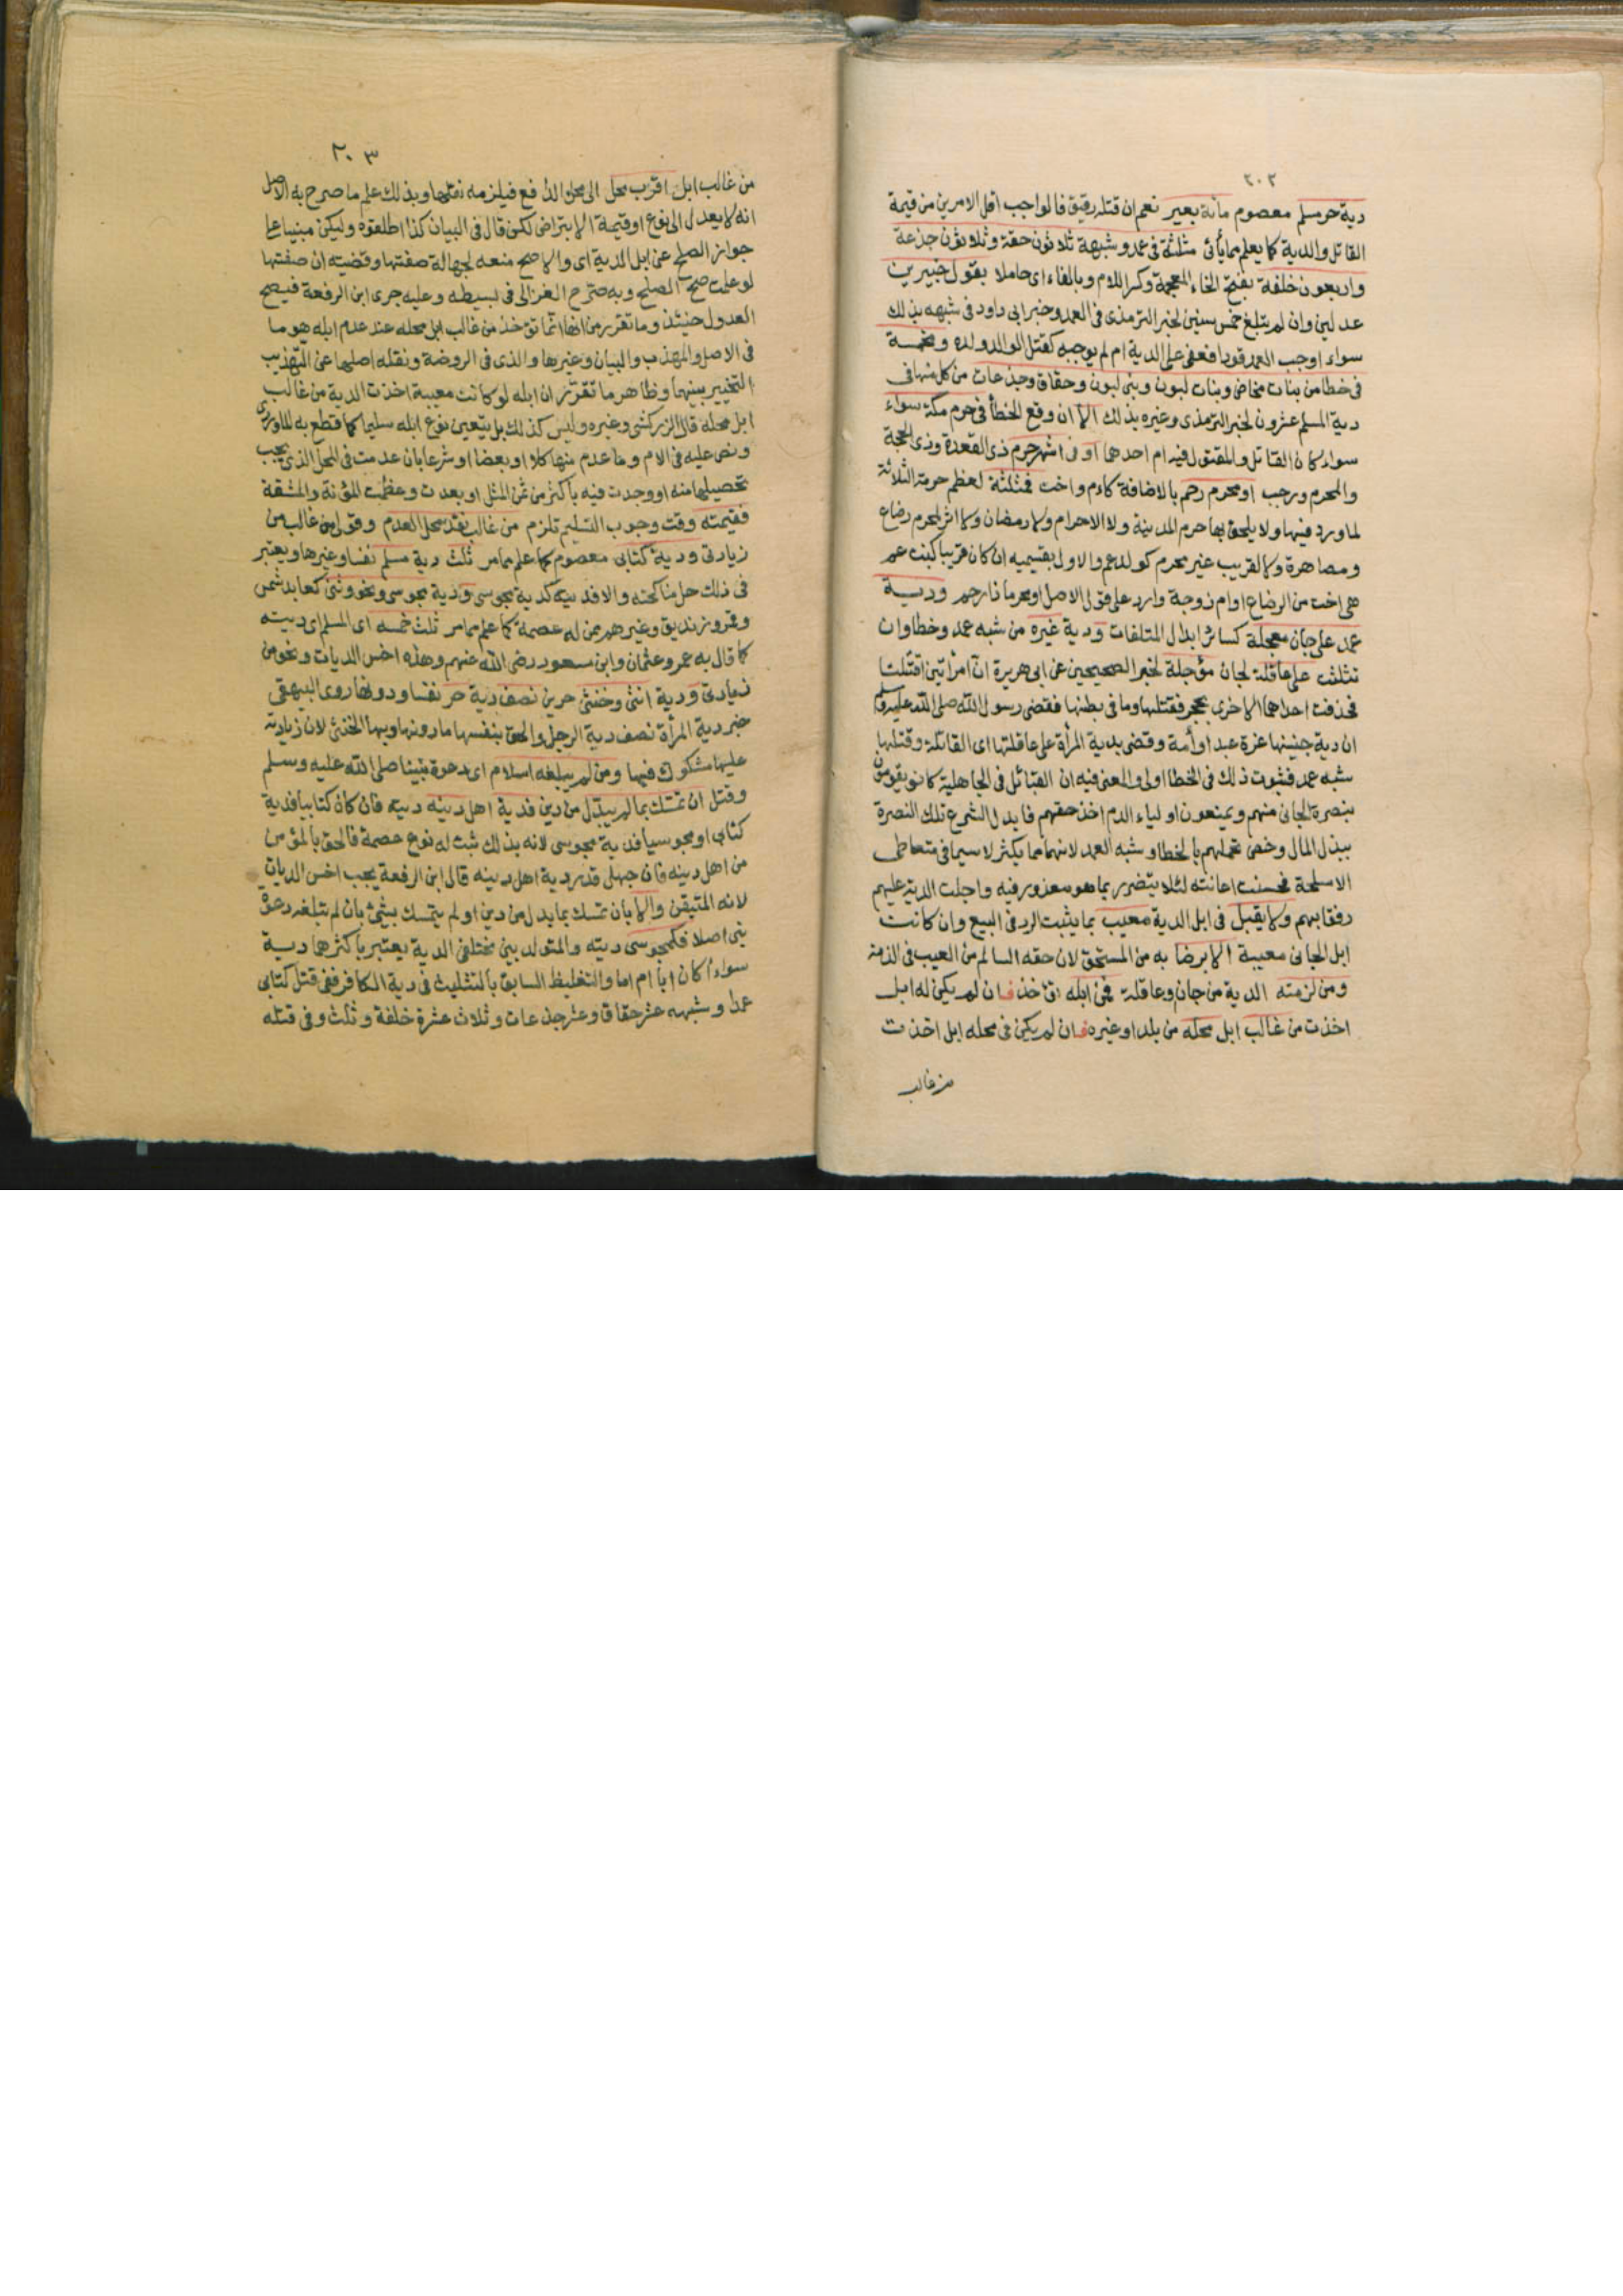 ٢٠٢
دية حر مسلم معصوم مائة بعير نعم ان قتله رقيق فالواجب اقل الامرين من قيمة
القاتل والدية كما يعلم مما يأتى مثلثة فى عمد وشبهه ثلاثون حقة وثلاثون جذعة
واربعون خلفة بفتح الخاء المعجمة وكسر اللام وبالفاء اى حاملا بقول خبيرين
عدلين وان لم يبلغ خمس سنين لخبر الترمذى فى العمد وخبر ابى داود فى شبهه بذلك
سواء اوجب العمد قودا فعفى على الدية ام لم يوجبه كقتل الوالد ولده ومخمسة
فى خطا من بنات مخاض وبنات لبون وبنى لبون وحقاق وجذعات من كل منها فى
دية المسلم عشرون لخبر الترمذى وغيره بذلك الا ان وقع الخطأ فى حرم مكة سواء
سواء كان القاتل والمقتول فيه ام احدهما او فى اشهر حرم ذى القعدة وذى الحجة
والمحرم ورجب او محرم رحم بالاضافة كام واخت فمثلثة لعظم حرمة الثلاثة
لما ورد فيها ولا يلحق بها حرم المدينة ولا الاحرام ولا رمضان ولا اثر لمحرم رضاع
ومصاهرة ولا لقريب غير محرم كولد عم والاول بقسيميه ان كان قريبا كبنت عم
هى اخت من الرضاع او ام زوجة وارد على قول الاصل او محرما ذا رحم ودية
عمد على جان معجلة كسائر ابدال المتلفات ودية غيره من شبه عمد وخطا وان
تثلثت على عاقلة لجان مؤجلة لخبر الصحيحين عن ابى هريرة ان امرأتين اقتتلتا
فحذفت احداهما الاخرى بحجر فقتلتها وما فى بطنها فقضى رسول الله صلى الله عليه وسلم
ان دية جنينها غرة عبد او أمة وقضى بدية المرأة على عاقلتها اى القاتلة وقتلها
شبه عمد فثبوت ذلك فى الخطا اولى والمعنى فيه ان القبائل فى الجاهلية كانو يقومون
بنصرة الجانى منهم ويمنعون اولياء الدم اخذ حقهم فابدل الشرع تلك النصرة
ببذل المال وخص تحملهم بالخطا وشبه العمد لانهما مما يكثر لا سيما فى متعاطى
الاسلحة فحسنت اعانته لئلا يتضرر بما هو معذور فيه واجلت الدية عليهم
رفقا بهم ولا يقبل فى ابل الدية معيب بما يثبت الرد فى البيع وان كانت
ابل الجانى معيبة الا برضا به من المستحق لان حقه السالم من العيب فى الذمة
ومن لزمته الدية من جان وعاقلة فمن ابله تؤخذ فان لم يكن له ابل
اخذت من غالب ابل محله من بلد او غيره فان لم يكن فى محله ابل اخذت
من غالب
٢٠٣
من غالب ابل اقرب محل الى محل الدافع فيلزمه نقلها وبذلك علم ما صرح به الاصل
انه لا يعدل الى نوع او قيمة الا بتراض لكن قال فى البيان كذا اطلقوه وليكن مبنيا على
جواز الصلح عن ابل الدية اى والاصح منعه لجهالة صفتها وقضيته ان صفتها
لو علمت صح الصلح وبه صرح الغزالى فى بسيطه وعليه جرى ابن الرفعة فيصح
العدول حينئذ وما تقرر من انها انما تؤخذ من غالب ابل محله عند عدم ابله هو ما
فى الاصل والمهذب والبيان وغيرها والذى فى الروضة ونقله اصلها عن التهذيب
التخيير بينهما وظاهر ما تقرر ان ابله لو كانت معيبة اخذت الدية من غالب
ابل محله قال الزركشى وغيره وليس كذلك بل يتعين نوع ابله سليما كما قطع به الماوردى
ونص عليه فى الام وما عدم منها كلا او بعضا او شرعا بان عدمت فى المحل الذى يجب
تحصيلها منه او وجدت فيه باكثر من ثمن المثل او بعدت وعظمت المؤنة والمشقة
فقيمته وقت وجوب التسليم تلزم من غالب نقد محل العدم وقولى من غالب من
زيادتى ودية كتابى معصوم كما علم مما مر ثلث دية مسلم نفسا وغيرها ويعتبر
فى ذلك حل مناكحته والا فديته كدية مجوسى ودية مجوسى ونحو وثنى كعابد شمس
وقمر وزنديق وغيرهم ممن له عصمة كما علم مما مر ثلث خمسه اى المسلم اى ديته
كما قال به عمر وعثمان وابن مسعود رضى الله عنهم وهذه اخس الديات ونحو من
زيادتى ودية انثى وخنثى حرين نصف دية حر نفسا ودونها روى البيهقى
خبر دية المرأة نصف دية الرجل والحق بنفسها ما دونها وبها الخنثى لان زيادته
عليها مشكوك فيها ومن لم يبلغه اسلام اى دعوة نبينا صلى الله عليه وسلم
وقتل ان تمسك بما لم يبدل من دين فدية اهل دينه ديته فان كان كتابيا فدية
كتابى او مجوسيا فدية مجوسى لانه بذلك ثبت له نوع عصمة فالحق بالمؤمن
من اهل دينه فان جهل قدر دية اهل دينه قال ابن الرفعة يجب اخس الديات
لانه المتيقن والا بأن تمسك بما بدل من دين او لم يتمسك بشئ بان لم تبلغه دعوة
نبى اصلا فكمجوسى ديته والمتولد بين مختلفى الدية يعتبر باكثرهما دية
سواء أكان ابا ام اما والتغليظ السابق بالتثليث فى دية الكافر ففى قتل كتابى
عمدا وشبهه عشر حقاق وعشر جذعات وثلاث عشرة خلفة وثلث وفى قتله